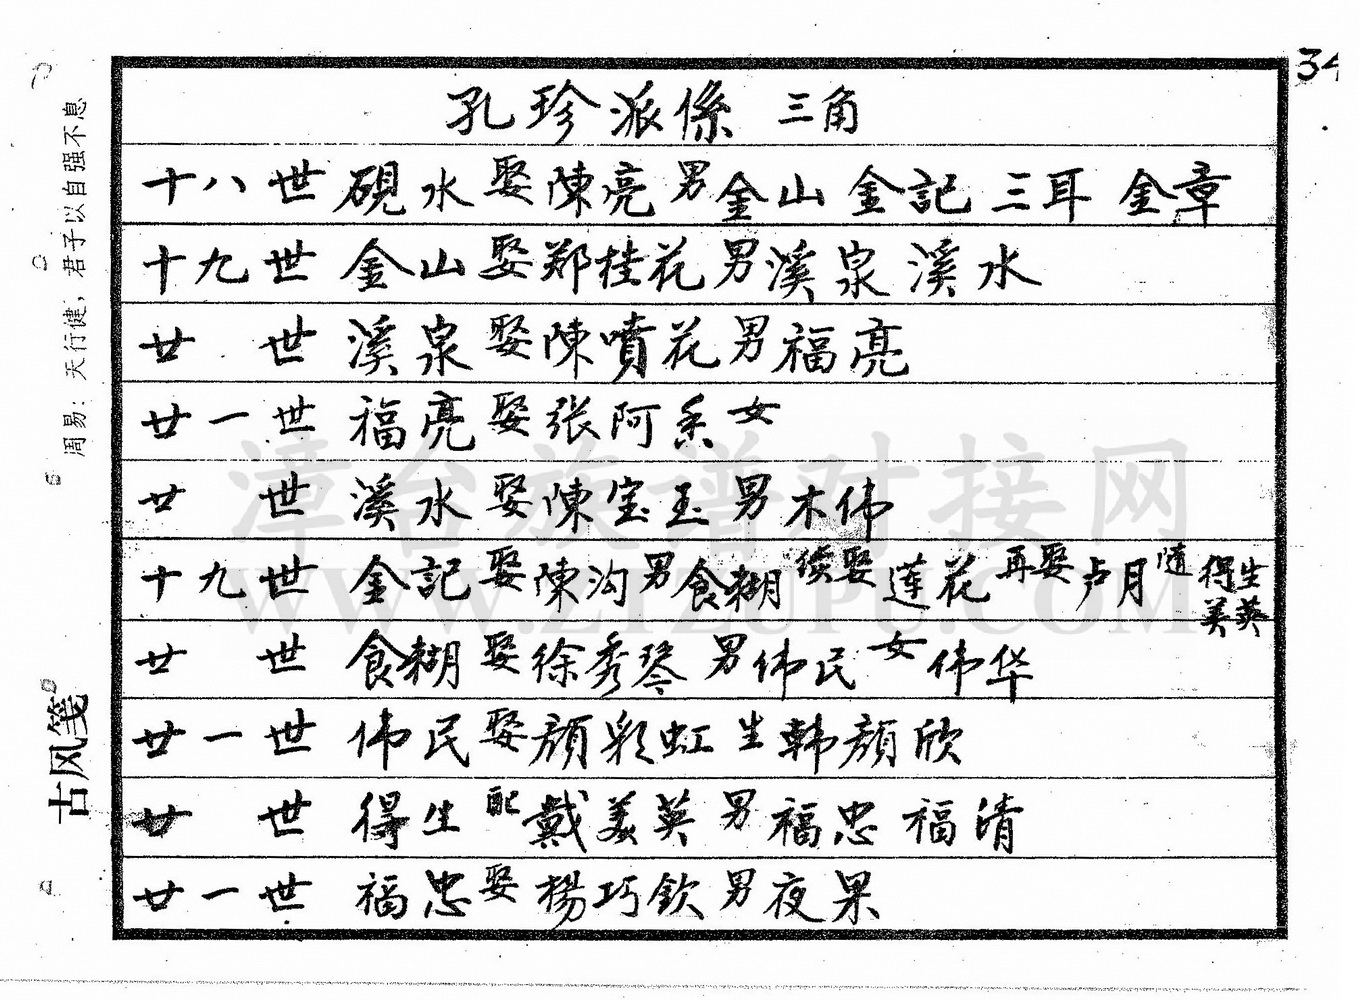 34
孔珍派係 三角
十八世 硯水 娶 陳亮 男 金山 金記 三耳 金章
十九世 金山 娶 郑桂花 男 溪泉 溪水
廿 世 溪泉 娶 陳噴花 男 福亮
廿一世 福亮 娶 张阿系 女
廿 世 溪水 娶 陳宝玉 男 木伟
十九世 金記 娶 陳沟 男 食糊 续娶 莲花 再娶 卢月 随 得生 美英
廿 世 食糊 娶 徐秀琴 男 伟民 女 伟华
廿一世 伟民 娶 顔彩虹 生 韩顔欣
廿 世 得生 配 戴美英 男 福忠 福清
廿一世 福忠 娶 楊巧欽 男 夜果
周易：天行健，君子以自强不息
古风笺
漳台族谱对接网
WWW.ZTZUPU.COM